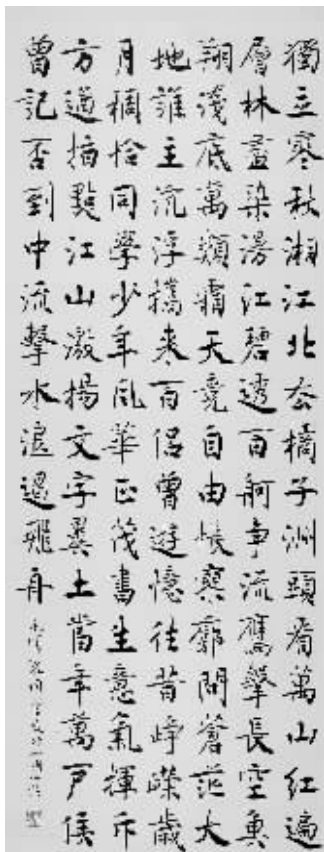 獨立寒秋湘江北去橘子洲頭看萬山紅遍
層林盡染漫江碧透百舸爭流鷹擊長空魚
翔淺底萬類霜天競自由悵寥廓問蒼茫大
地誰主沉浮攜来百侶曾遊憶往昔崢嶸歲
月稠恰同學少年風華正茂書生意氣揮斥
方遒指點江山激揚文字糞土當年萬戶侯
曾記否到中流擊水浪遏飛舟